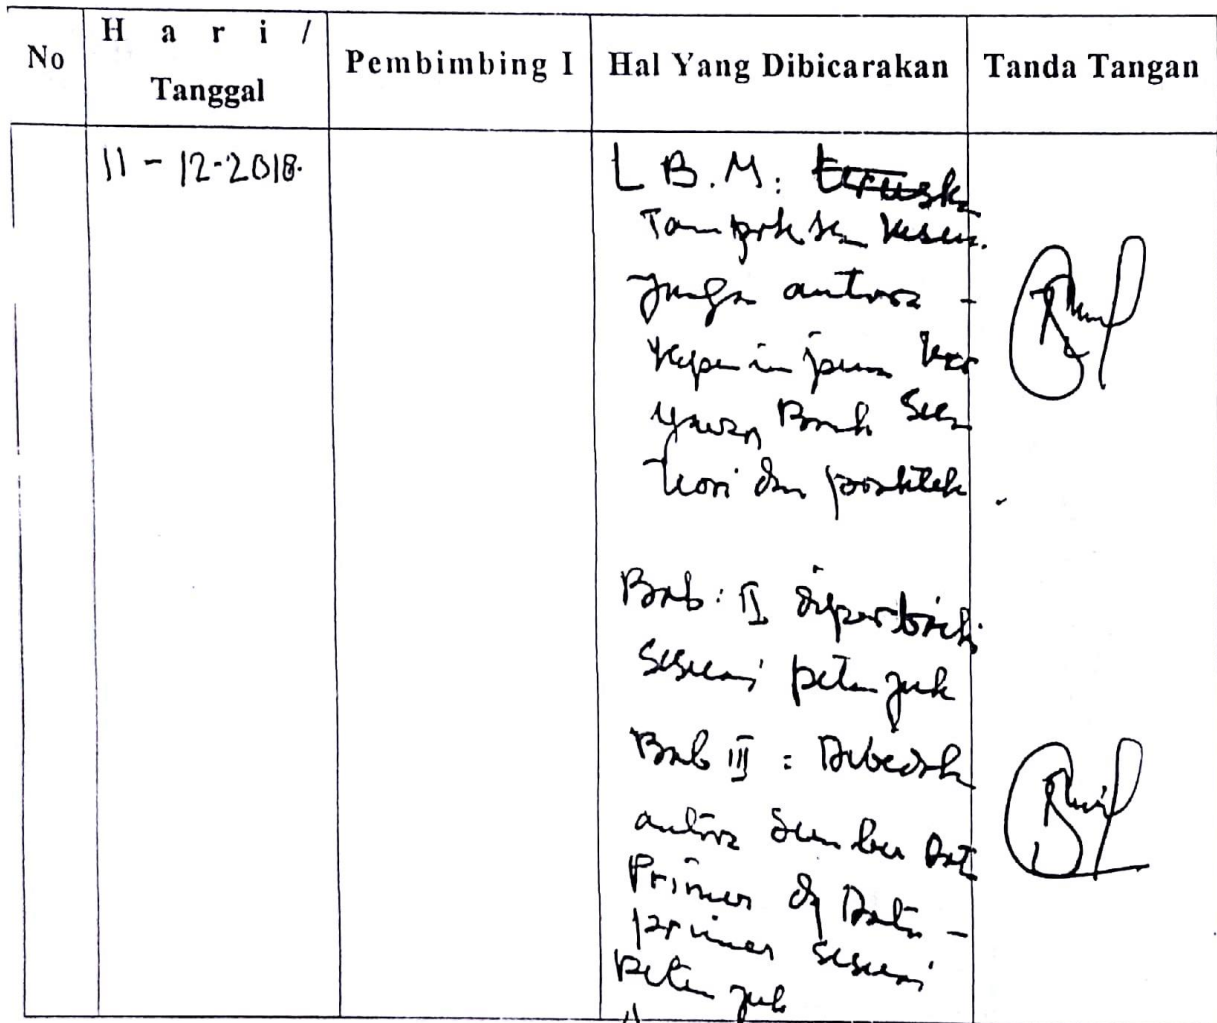 No
H a r i /
Tanggal
Pembimbing I
Hal Yang Dibicarakan
Tanda Tangan
11 - 12-2018.
L B.M: terusk
Tampakkan kesen.
jangan antara -
kar
yawan Bank
teori dan praktek.
Bab: II diperbaiki
sesuai petunjuk
Bab III : Dibedak
antara Sumber Dat
Primer dg Data -
primer sesuai
petunjuk